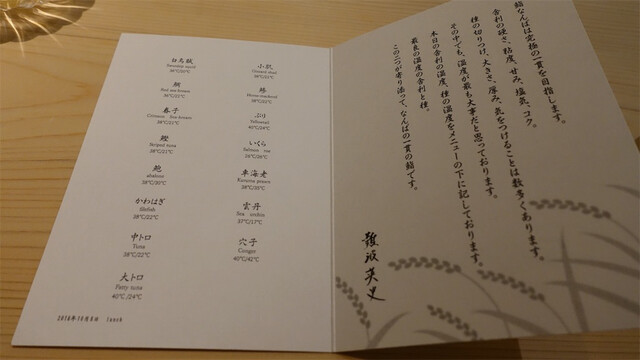 白烏賊
Swordtip squid
鯛
Red sea bream
36°C/21°C
春子
Crimson Sea bream
38°C/21°C
鰹
Striped tuna
38°C/21°C
鮑
abalone
38°C/30°C
かわはぎ
filefish
38°C/22°C
中トロ
Tuna
38°C/22°C
大トロ
Fatty tuna
40°C /24°C
小肌
Gizzard shad
鯵
Horse mackerel
ぶり
Yellowtail
40°C/24°C
いくら
Salmon roe
車海老
Kuruma prawn
38°C/35°C
雲丹
Sea urchin
37°C/17°C
穴子
Conger
40°C/42°C
2018年10月8日 lunch
鮨なんばは究極の一貫を目指します。
舎利の硬さ、粘度、甘み、塩気、コク。
種の切りつけ、大きさ、厚み、気をつけることは数多くあります。
その中でも、温度が最も大事だと思っております。
本日の舎利の温度、種の温度をメニューの下に記しております。
最良の温度の舎利と種。
この二つが寄り添って、なんばの一貫の鮨です。
難波英史